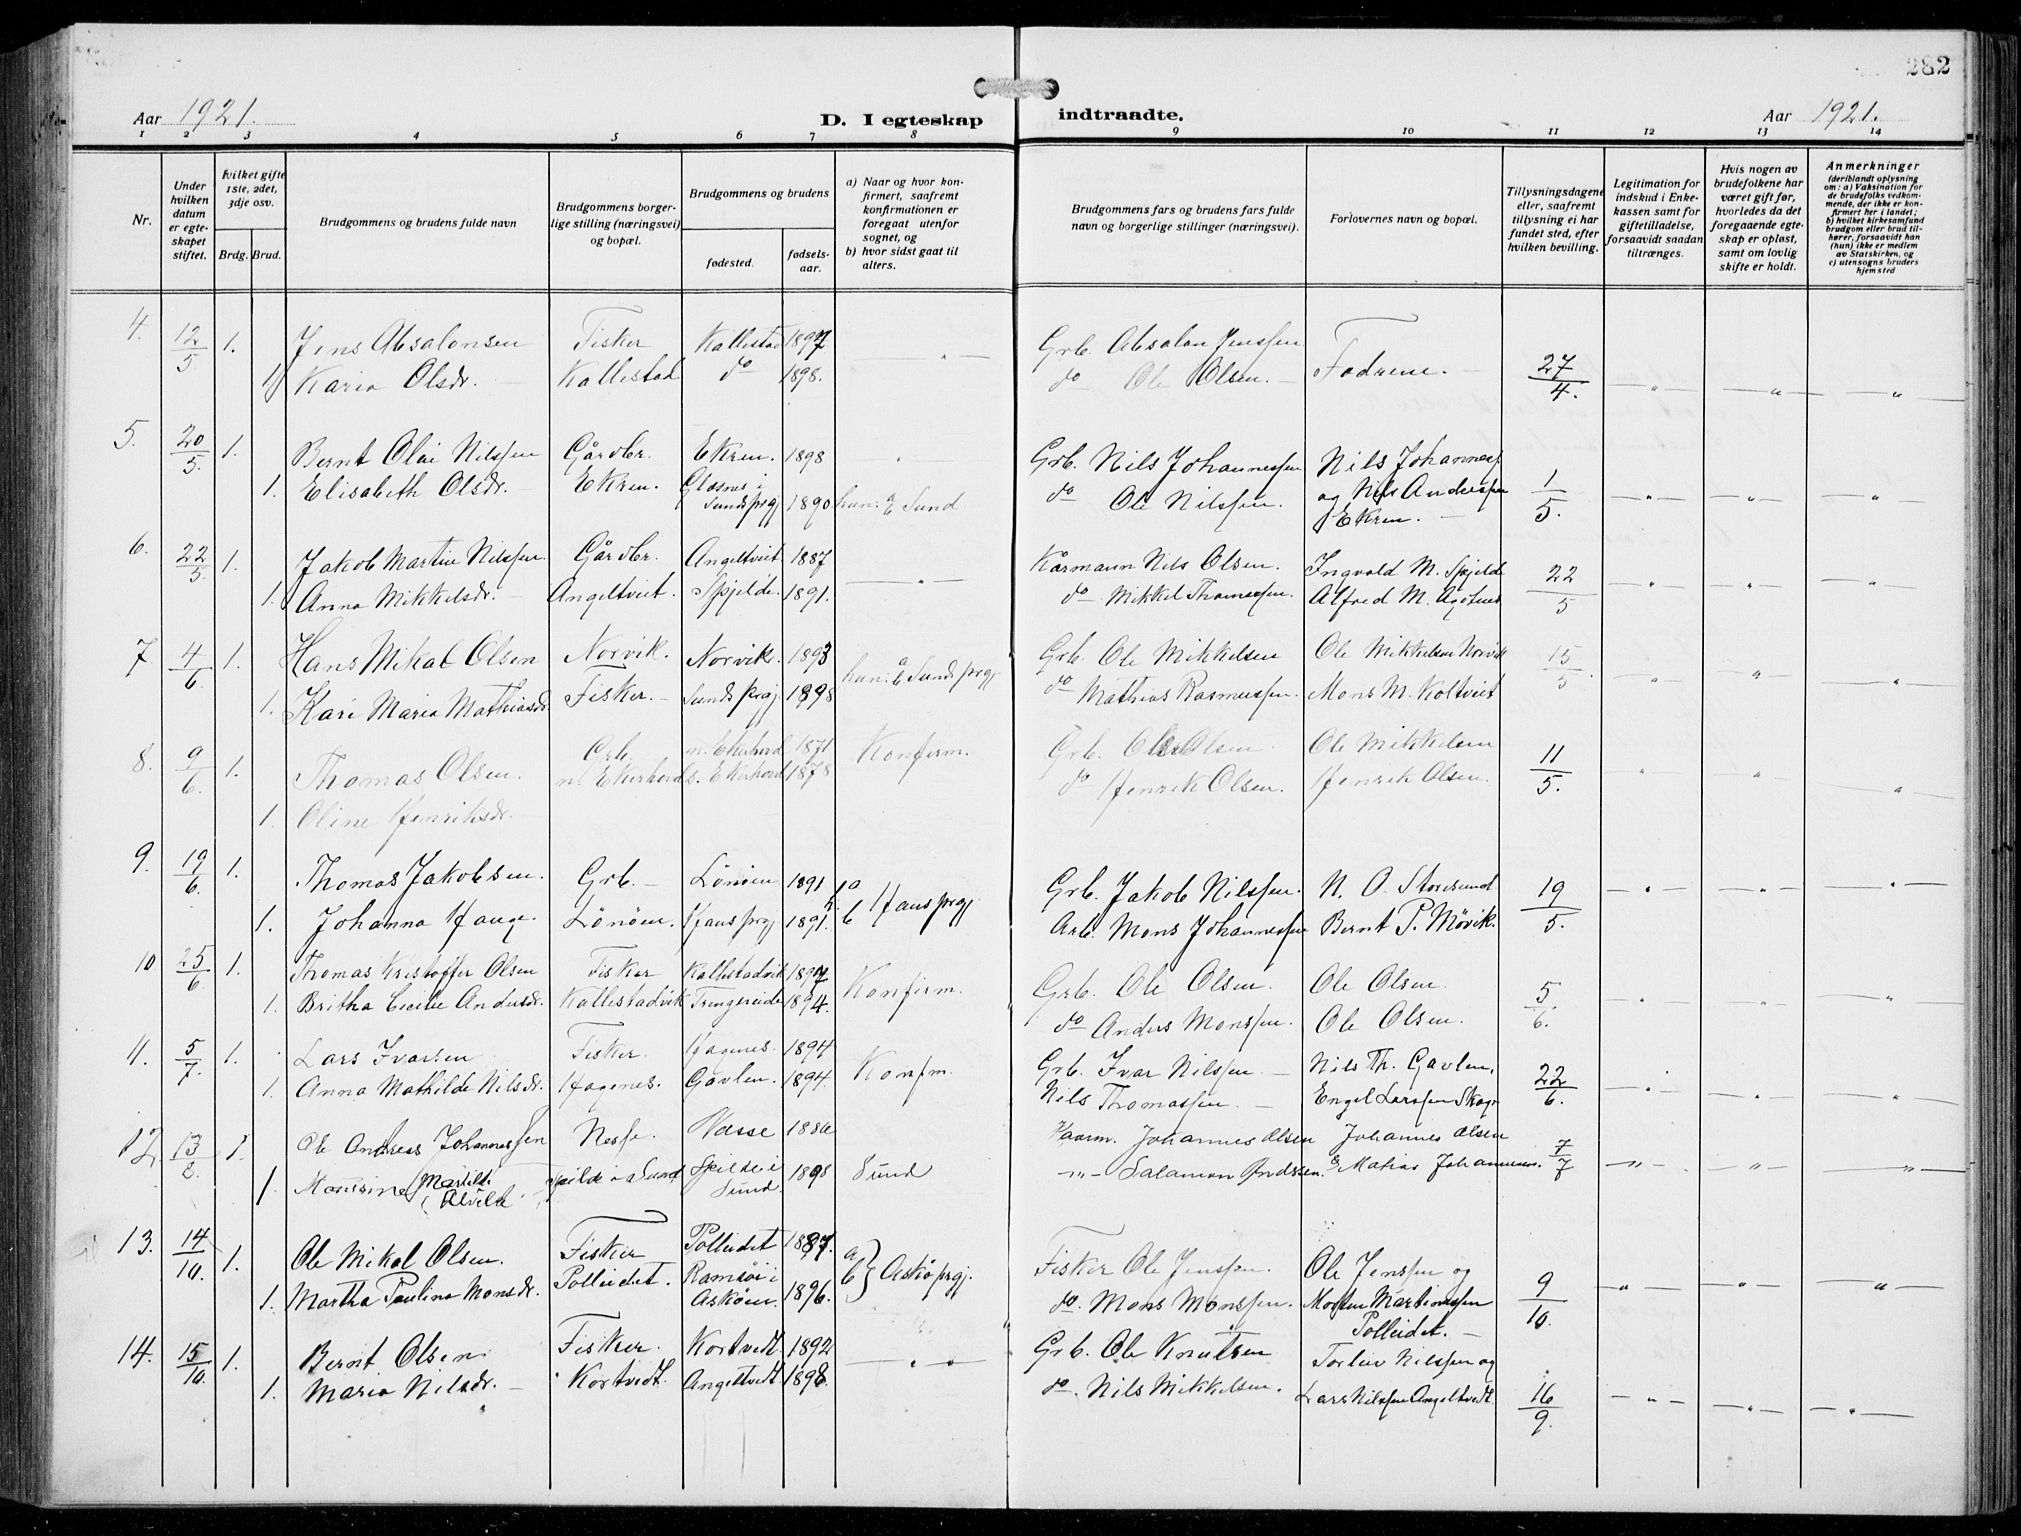 282
Aar 1921. D. I egteskap indtraadte. Aar 1921.
1 2 3 4 5 6 7 8 9 10 11 12 13 14
Nr.
Under hvilken datum er egteskapet stiftet.
hvilket gifte 1ste, 2det, 3dje osv.
Brdg. Brud.
Brudgommens og brudens fulde navn
Brudgommens borgerlige stilling (næringsvei) og bopæl.
Brudgommens og brudens
fødested.
fødselsaar.
a) Naar og hvor konfirmert, saafremt konfirmationen er foregaat utenfor sognet, og
b) hvor sidst gaat til alters.
Brudgommens fars og brudens fars fulde navn og borgerlige stillinger (næringsvei).
Forlovernes navn og bopæl.
Tillysningsdagene eller, saafremt tillysning ei har fundet sted, efter hvilken bevilling.
Legitimation for indskud i Enkekassen samt for giftetilladelse, forsaavidt saadan tiltrænges.
Hvis nogen av brudefolkene har været gift før, hvorledes da det foregaaende egteskap er opløst, samt om lovlig skifte er holdt.
Anmerkninger (deriblandt oplysning om: a) Vaksination for de brudefolks vedkommende, der ikke er konfirmert her i landet; b) hvilket kirkesamfund brudgom eller brud tilhører, forsaavidt han (hun) ikke er medlem av Statskirken, og c) utensogns bruders hjemsted
4. 12/5 1. Jens Absalonsen Fisker Kallestad 1897 " Grb. Absalon Jenssen Fædrene. 27/4. " " "
1 Karia Olsdr. Kallestad do 1898. do Ole Olsen.
5. 20/5. 1. Bernt Olai Nilssen Gårdbr. Ekren. 1898 " Grb. Nils Johannessen Nils Johanness. 1/5. " " "
1. Elisabeth Olsdr. Ekren. Glæsnes i Sunds prgj 1890 hun: a b Sund do Ole Nilssen. og Nils Andressen Ekren.
6. 22/5. 1. Jakob Martin Nilssen Gårdbr. Angeltveit 1887 " Kårmann Nils Olsen. Ingvald M. Spjelde 22/5 " " "
1. Anna Mikkelsdr. Angeltveit. Spjelde. 1891. do Mikkel Thomessen. Alfred M. Agotnes
7 4/6 1. Hans Mikal Olsen Norvik. Norvik. 1893 hun: a b Sunds prgj Grb. Ole Mikkelsen Ole Mikkelsen Norvik 15/5. " " "
1. Kari Maria Mathiasdr Fisker. Sunds prgj 1898 do Mathias Rasmussen. Mons M. Koltveit
8. 9/6. 1. Thomas Olsen. Grb. n. Ekerhovd 1871 Konfirm. Grb. Ole Olsen Ole Mikkelsen 11/5. " " "
n. Ekerhovd s. Ekerhovd 1878 do Henrik Olsen. Henrik Olsen.
1. Oline Henriksdr.
9. 19/6. 1. Thomas Jakobsen. Grb. Lönöen 1891 Grb. Jakob Nilssen. N. O. Storesund 19/5. " " "
1. Johanna Hauge. Lönöen. Haus prgj 1891. a b Haus prgj. Arb. Mons Johannessen Bernt P. Mövik.
10. 25/6 1. Thomas Kristoffer Olsen Fisker Kallestadvik 1897 Konfirm. Grb. Ole Olsen. Ole Olsen. 5/6. " " "
1. Britha Cecilie Andersdr. Kallestadvik Tringereide 1894. do Anders Monssen. Ole Olsen.
11. 5/7. 1. Lars Ivarsen Fisker. Hagenes. 1894 Konfm. Grb. Ivar Nilssen. Nils Th. Gavlen. 22/6. " " "
1. Anna Mathilde Nilsdr. Hagenes. Gavlen. 1894. Nils Thomassen. Engel Larssen Skoge
12. 13/8. 1. Ole Andreas Johannessen Nesse. Næsse 1886 Kaarm. Johannes Olsen Johannes Olsen 7/7 " " "
1. Maurine (Matilde Alvilde Spilde i Sund Spilde i Sund. 1898 Sund " Salamon Andrssen. & Matias Johannessen.
13. 14/10. 1. Ole Mikal Olsen. Fisker Polleidet 1887. a b } Askö prgj. Fisker Ole Jenssen. Ole Jenssen og 9/10. " " "
1. Martha Paulina Monsdr. Polleidet. Ramsöi i Asköen. 1896. do. Mons Monssen. Morten Martinussen Polleidet.
14. 15/10. 1. Bernt Olsen. Fisker. Kortvedt. 1892 " " Grb. Ole Knutsen Torleiv Nilssen og 16/9. " " "
1. Maria Nilsdr. Kortvedt. Angeltvedt 1898. do. Nils Mikkelsen. Lars Nilssen Angeltvedt